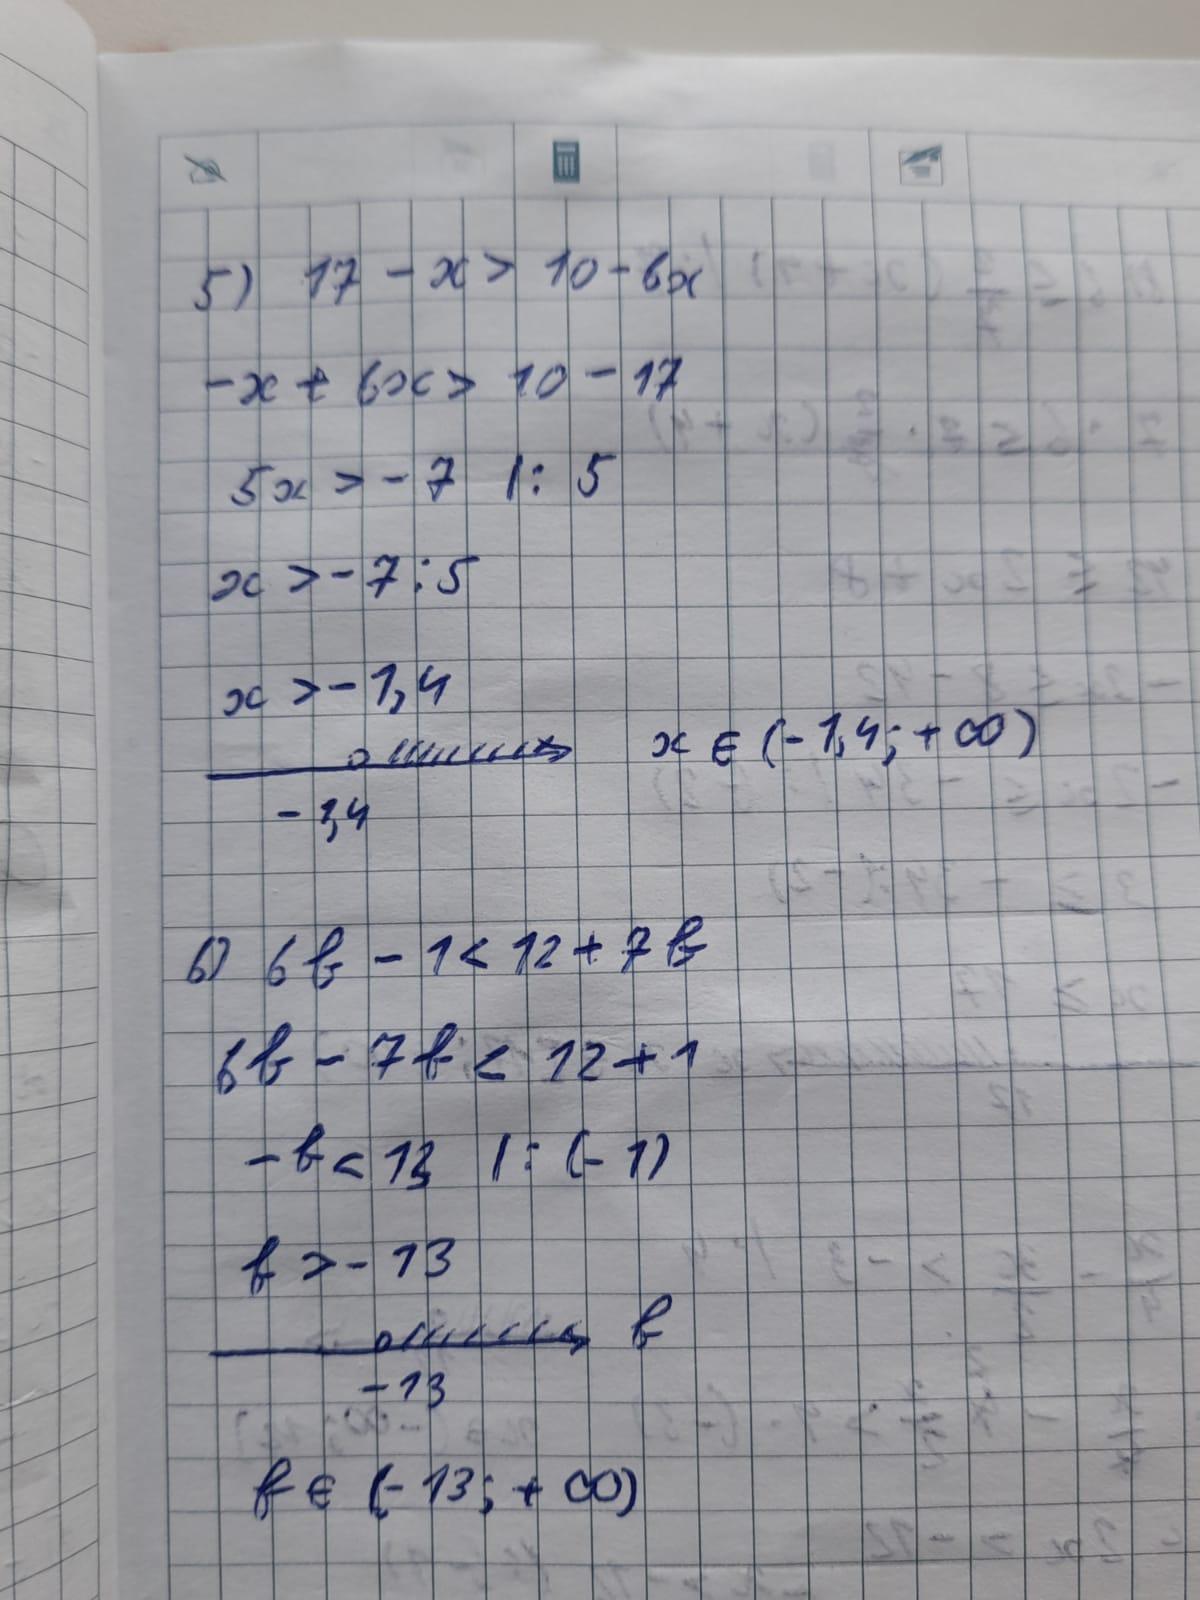 5) 17 - x > 10 - 6x
-x + 6x > 10 - 17
5x > -7 |: 5
x > -7 : 5
x > -1,4
x ∈ (-1,4; +∞)
-1,4
6) 6b - 1 < 12 + 7b
6b - 7b < 12 + 1
-b < 13 |: (-1)
b > -13
b
-13
b ∈ (-13; +∞)